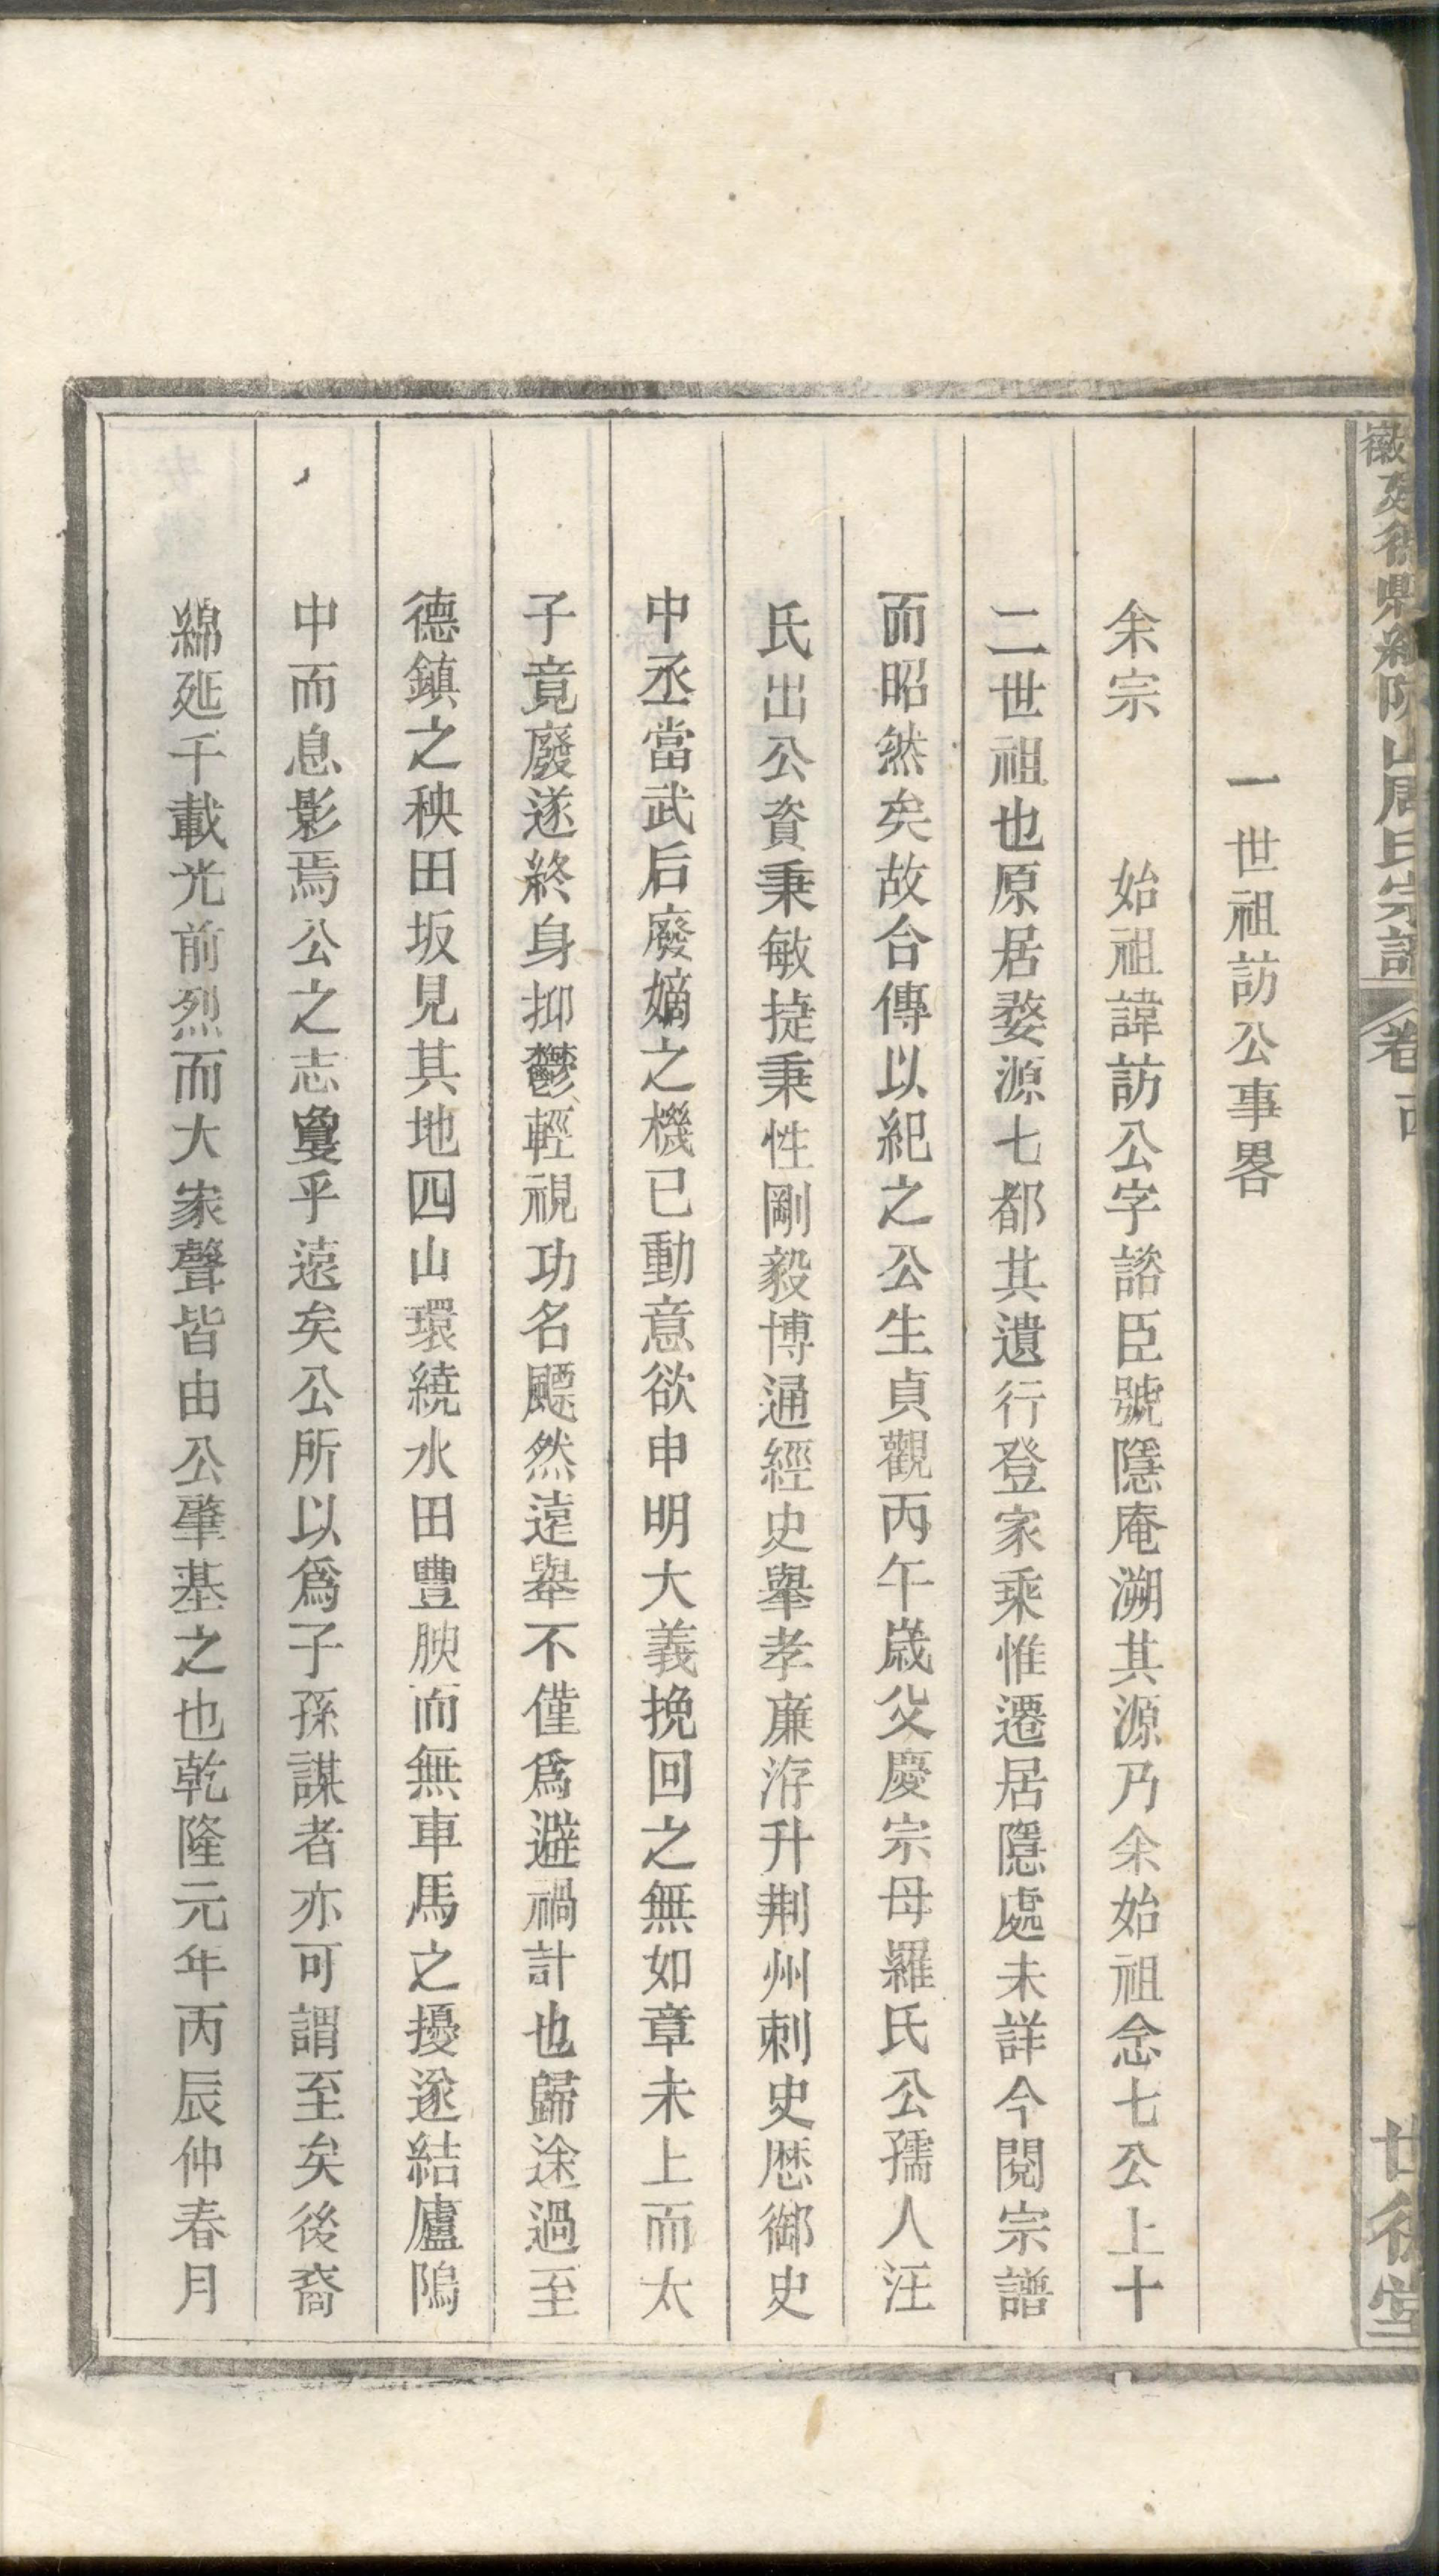 一世祖訪公事畧
余宗　始祖諱訪公字諮臣號隱庵溯其源乃余始祖念七公上十
二世祖也原居婺源七都其遺行登家乘惟遷居隱處未詳今閱宗譜
而昭然矣故合傳以紀之公生貞觀丙午歲父慶宗母羅氏公孺人汪
氏出公資秉敏捷秉性剛毅博通經史舉孝廉洊升荆州刺史歷御史
中丞當武后廢嫡之機已動意欲申明大義挽回之無如章未上而太
子竟廢遂終身抑鬱輕視功名飄然遠舉不僅爲避禍計也歸途過至
德鎮之秧田坂見其地四山環繞水田豐腴而無車馬之擾遂結廬隖
中而息影焉公之志敻乎遠矣公所以爲子孫謀者亦可謂至矣後裔
綿延千載光前烈而大家聲皆由公肇基之也乾隆元年丙辰仲春月
山周氏宗譜
卷